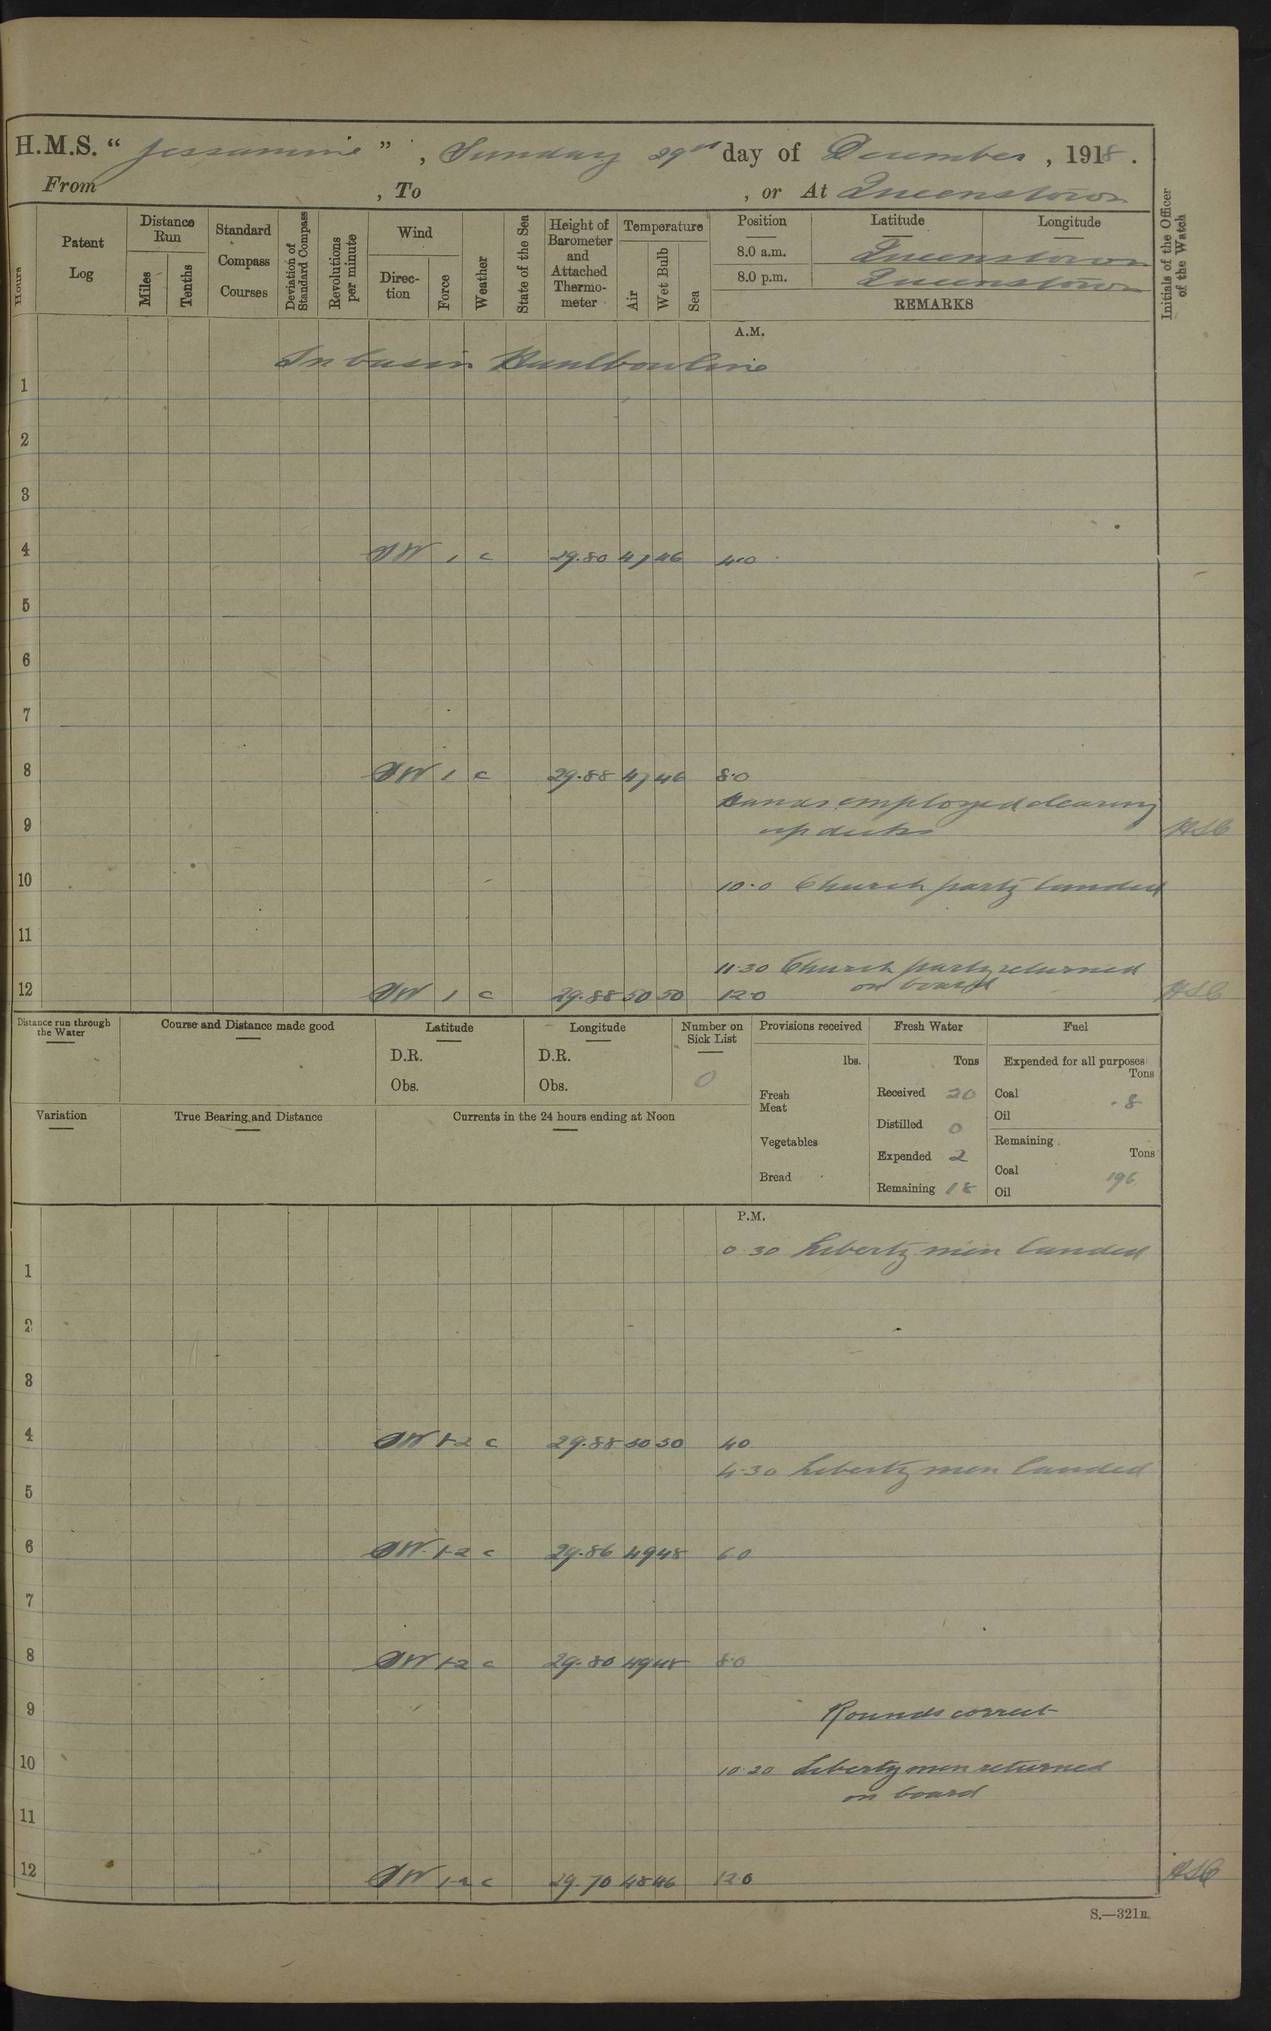 H.M.S. " Jessamine " , Sunday 29th day of December , 1918 .
From , To , or At Queenstown
Hours
Patent Log
Distance Run
Miles
Tenths
Standard Compass Courses
Deviation of Standard Compass
Revolutions per minute
Wind
Direction
Force
Weather
State of the Sea
Height of Barometer and Attached Thermometer
Temperature
Air
Wet Bulb
Sea
Position Latitude Longitude
8.0 a.m. Queenstown
8.0 p.m. Queenstown
REMARKS
Initials of the Officer of the Watch
A.M.
In basin Haulbowline
1
2
3
4 SW 1 c 29.80 47 46 4.0
5
6
7
8 SW 1 c 29.88 47 46 8.0
Hands employed clearing
9 up decks
10 10.0 Church party landed
11
11.30 Church party returned
on board
12 SW 1 c 29.88 50 50 12.0
Distance run through the Water
Course and Distance made good
Latitude
D.R.
Obs.
Longitude
D.R.
Obs.
Number on Sick List
0
Provisions received
lbs.
Fresh Meat
Vegetables
Bread
Fresh Water
Tons
Received 20
Distilled 0
Expended 2
Remaining 18
Fuel
Expended for all purposes
Tons
Coal .8
Oil
Remaining
Tons
Coal 196
Oil
Variation
True Bearing and Distance
Currents in the 24 hours ending at Noon
P.M.
0.30 Liberty men landed
1
2
3
4 SW 1-2 c 29.88 50 50 4.0
4.30 Liberty men landed
5
6 SW 1-2 c 29.86 49 48 6.0
7
8 SW 1-2 c 29.80 49 48 8.0
9 Rounds correct
10 10.20 Liberty men returned
on board
11
12 SW 1-2 c 29.70 48 46 12.0
S.—321B.